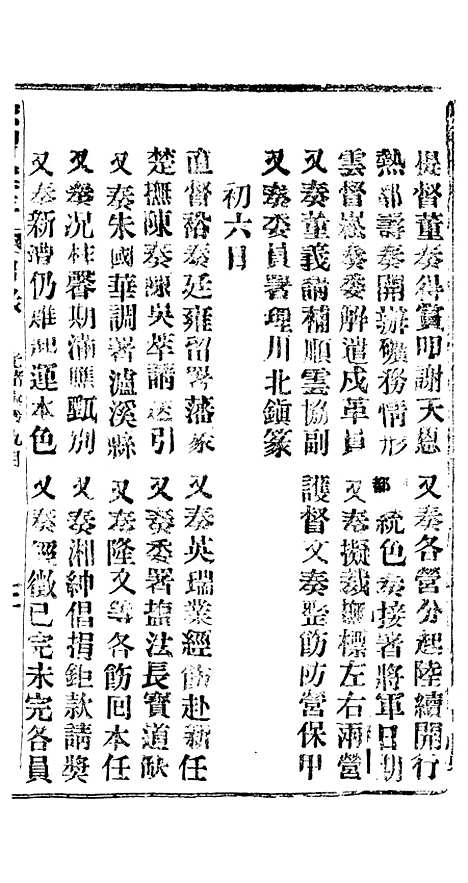 提督董奏得賞叩謝天恩
又奏各營分起陸續開行
熱都壽奏開辦礦務情形
都統色奏接署將軍日期
雲督崧奏委解遣戍革員
又奏擬裁撫標左右兩營
又奏董義請補順雲協副
護督文奏整飭防營保甲
又奏委員署理川北鎮篆
初六日
直督裕奏廷雍留署藩篆
又奏英瑞業經飭赴新任
楚撫陳奏陳吳萃請送引
又奏委署鹽法長寶道缺
又奏朱國華調署瀘溪縣
又奏隆文等各飭回本任
又奏况桂馨期滿甄別
又奏湘紳倡捐鉅款請獎
又奏新漕仍難起運本色
又奏經徵已完未完各員